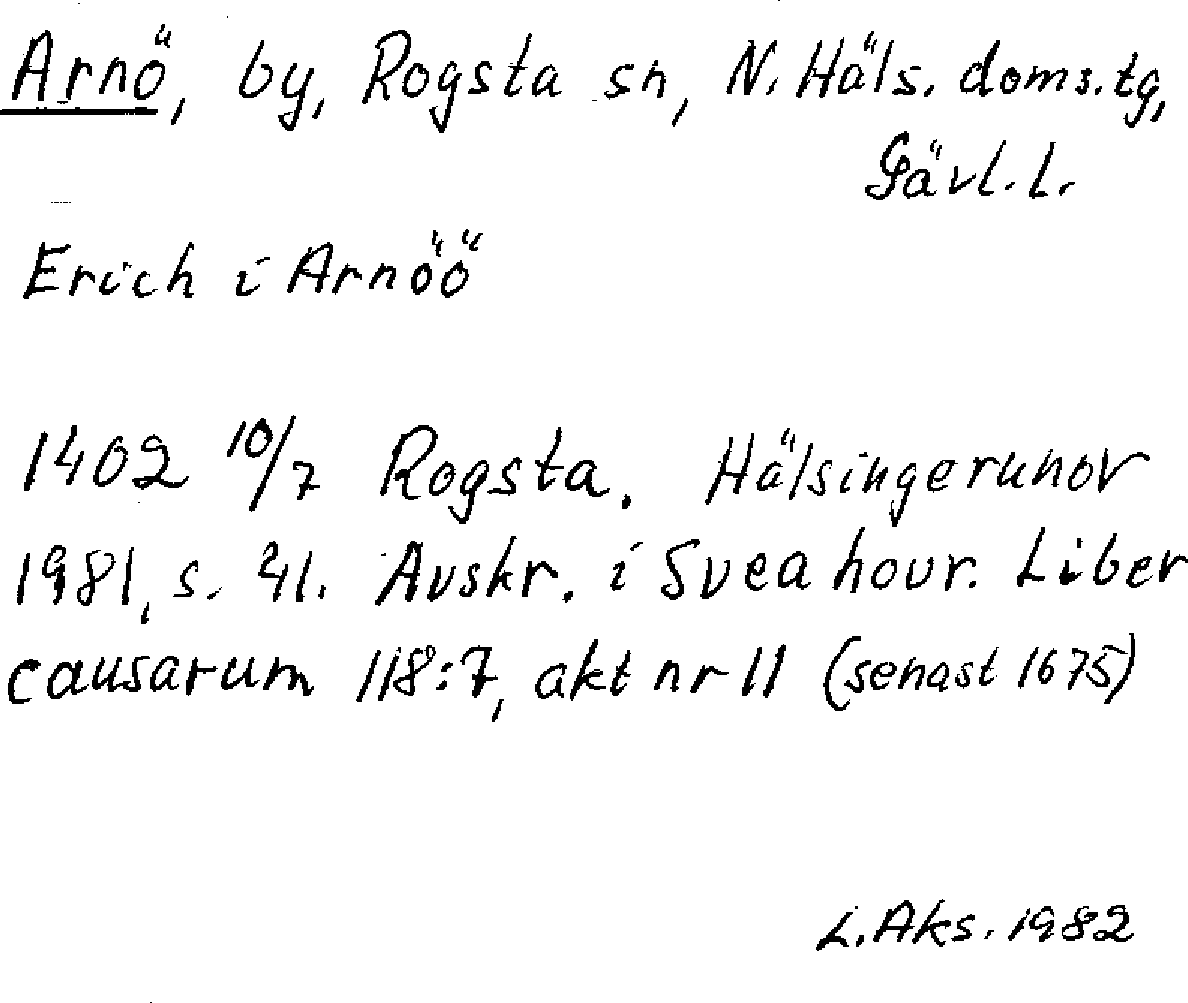 Arnö, by, Rogsta sn, N. Häls. doms.tg,
Gävl. l.
Erich i Arnöö
1402 10/7 Rogsta. Hälsingerunor
1981, s. 41. Avskr. i Svea hovr. Liber
causarum 118:7, akt nr 11 (senast 1675)
L. Aks. 1982